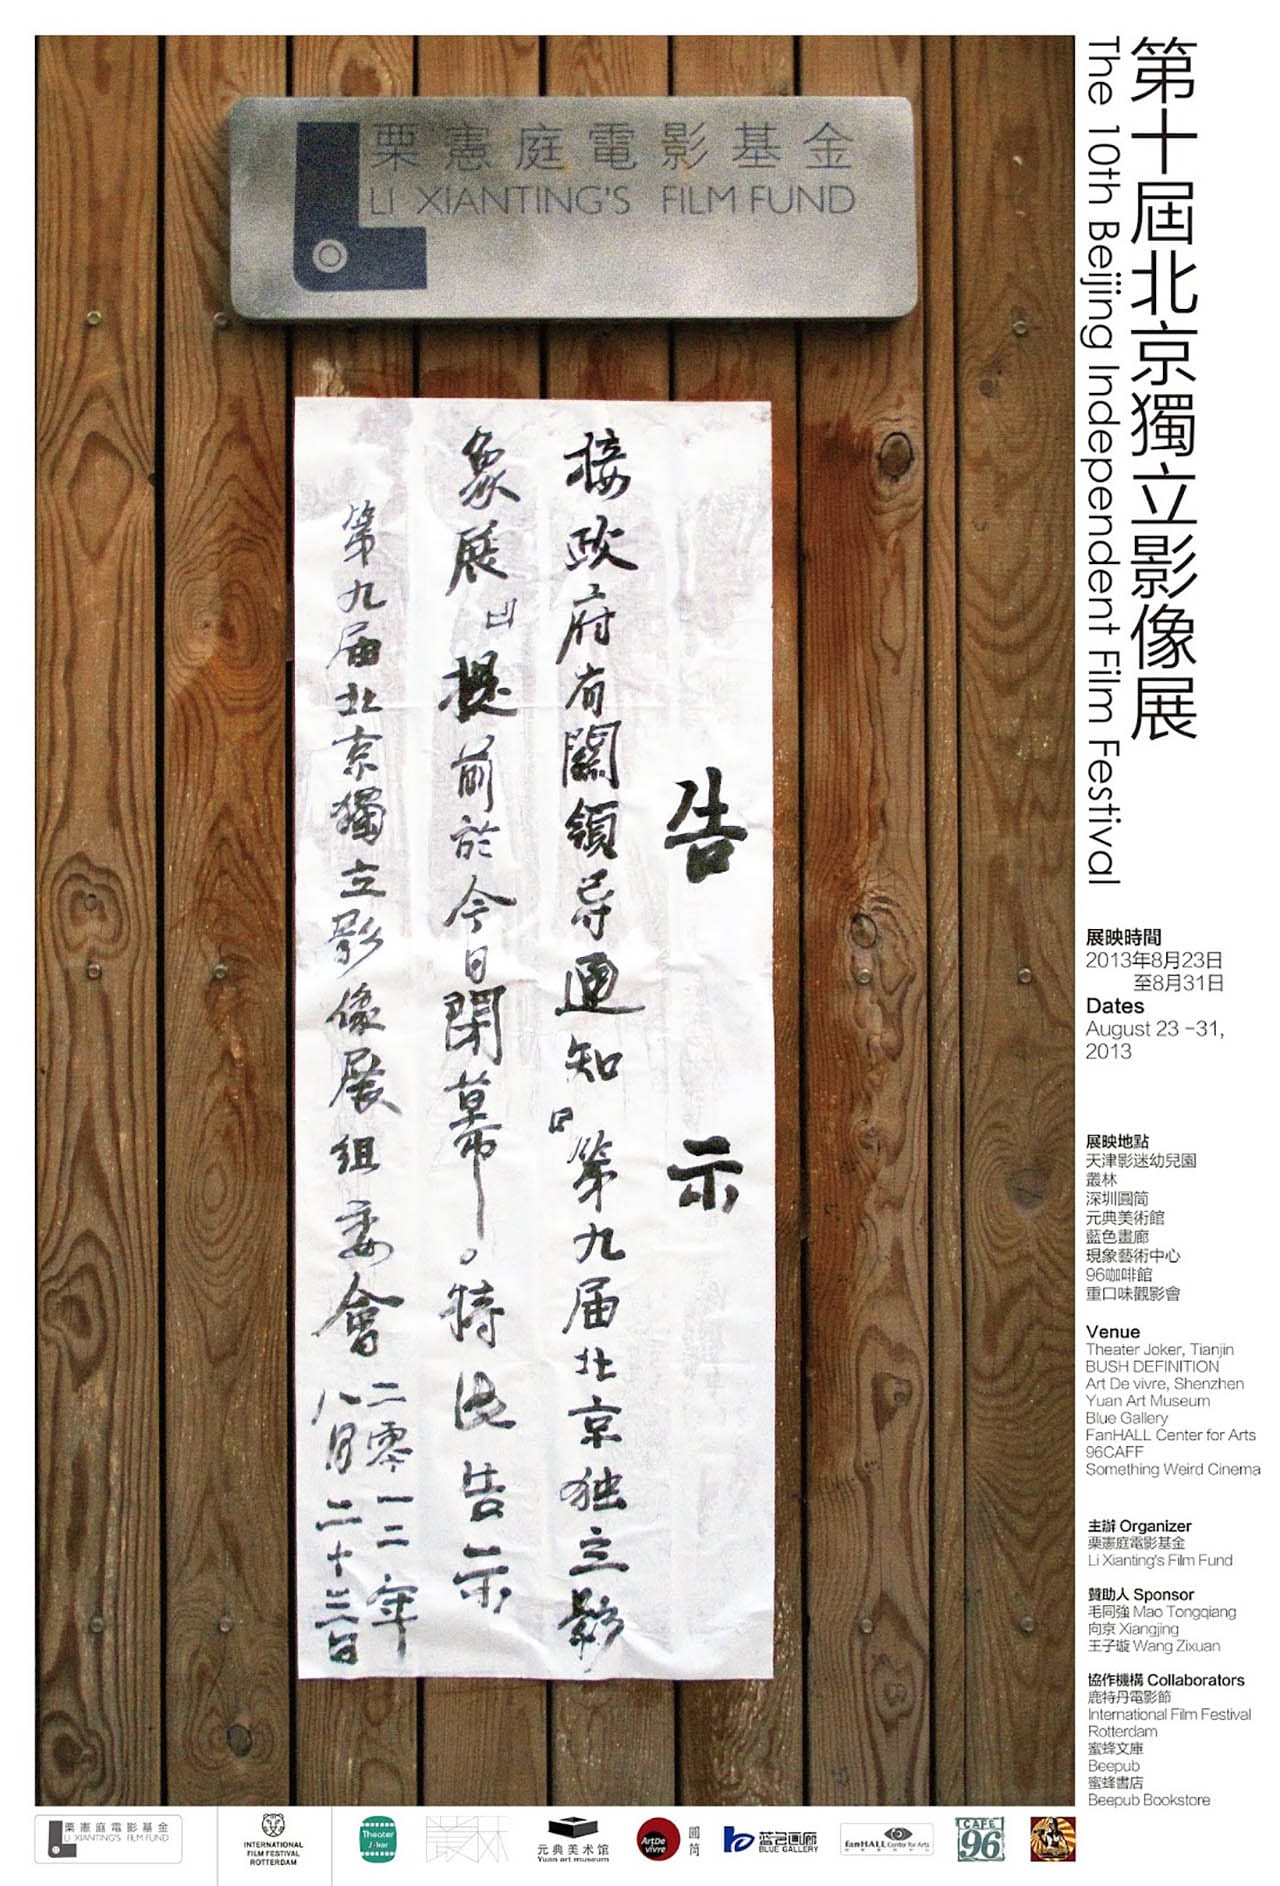 栗憲庭電影基金
LI XIANTING'S FILM FUND
告示
接政府有關領导通知『第九届北京独立影
象展』提前於今日閉幕。特此告示
第九届北京獨立影像展組委會
二零一二年
八月二十三日
第十屆北京獨立影像展
The 10th Beijing Independent Film Festival
展映時間
2013年8月23日
至8月31日
Dates
August 23 –31,
2013
展映地點
天津影迷幼兒園
叢林
深圳圓筒
元典美術館
藍色畫廊
現象藝術中心
96咖啡館
重口味觀影會
Venue
Theater Joker, Tianjin
BUSH DEFINITION
Art De vivre, Shenzhen
Yuan Art Museum
Blue Gallery
FanHALL Center for Arts
96CAFF
Something Weird Cinema
主辦 Organizer
栗憲庭電影基金
Li Xianting's Film Fund
贊助人 Sponsor
毛同強 Mao Tongqiang
向京 Xiangjing
王子璇 Wang Zixuan
協作機構 Collaborators
鹿特丹電影節
International Film Festival
Rotterdam
蜜蜂文庫
Beepub
蜜蜂書店
Beepub Bookstore
栗憲庭電影基金
LI XIANTING'S FILM FUND
INTERNATIONAL
FILM FESTIVAL
ROTTERDAM
Theater
叢林
元典美术馆
Yuan art museum
ArtDe
vivre
圓筒
蓝色画廊
BLUE GALLERY
fanHALL Center for Arts
CAFE
96